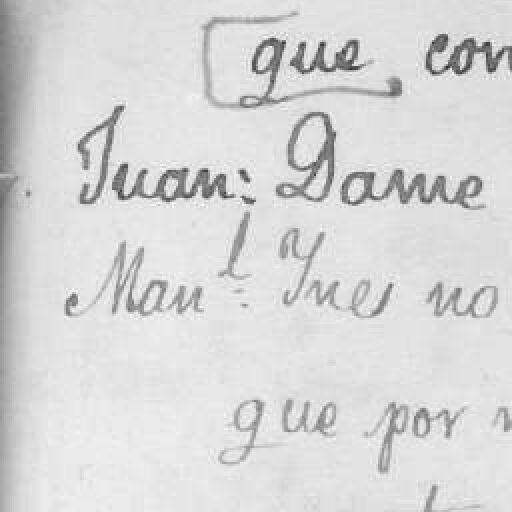 que con
Juan: Dame
Man.l Ines no
que por